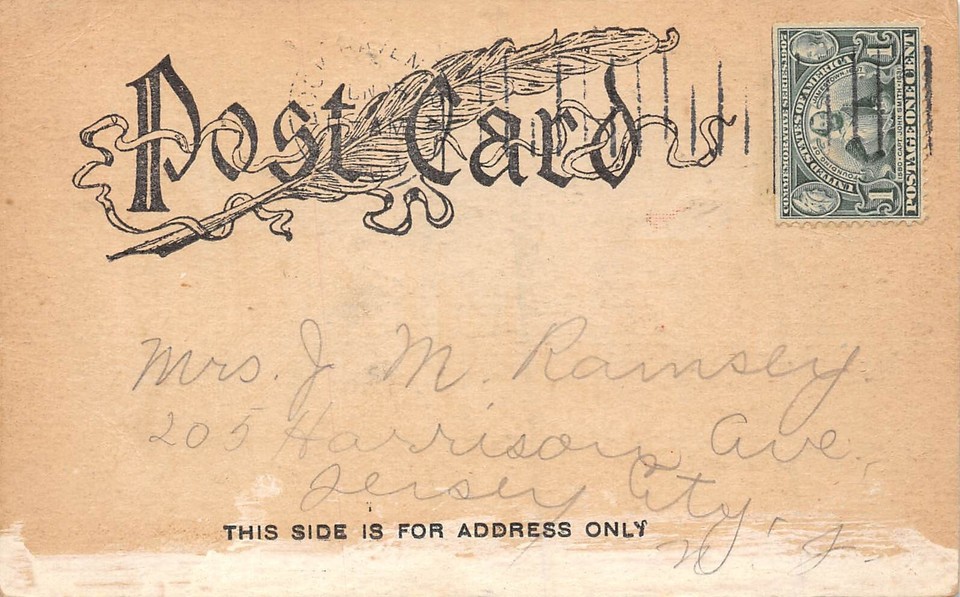 Post Card
COMMEMORATIVE SERIES 1907
UNITED STATES OF AMERICA
FOUNDING OF JAMESTOWN 1607
1580 · CAPT. JOHN SMITH · 1631
POSTAGE ONE CENT
1
1
Mrs. J. M. Ramsey.
205 Harrison Ave.,
Jersey City,
N. J.
THIS SIDE IS FOR ADDRESS ONLY